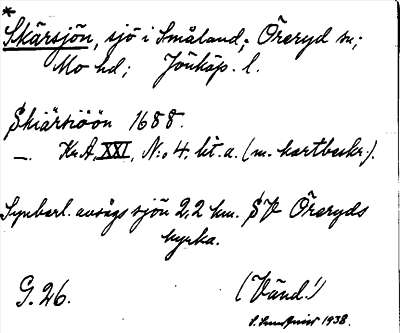 *
Skärsjön, sjö i Småland; Öreryd sn;
Mo hd; Jönköp. l.
Skiärsiöön 1688.
—. Kr. A, XXI, N:o 4, lit. a. (m. kartbeskr.).
Synbarl. avsågs sjön 2,2 km. SV Öreryds
kyrka.
G. 26.
(Vänd!)
1938.